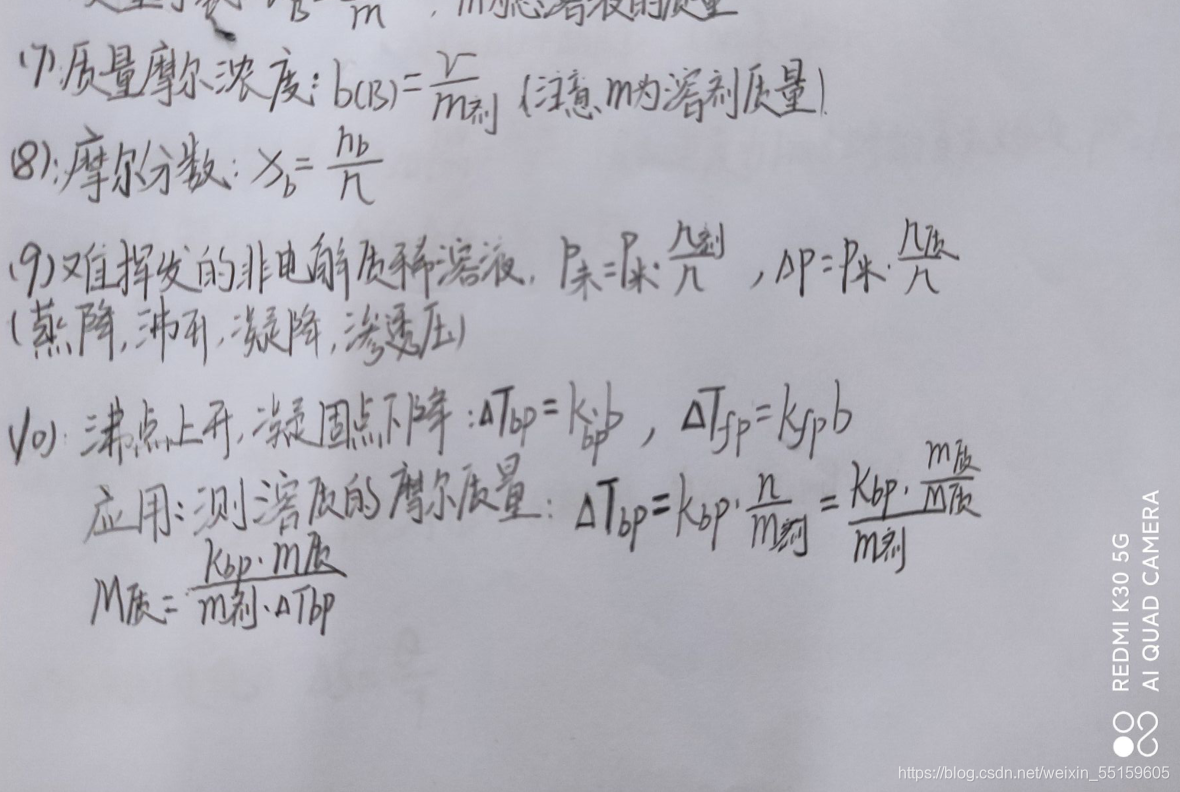 m为总溶液的质量
(7).质量摩尔浓度: b(B)=ν/m剂 (注意m为溶剂质量).
(8):摩尔分数: x_b=n_b/n
(9)难挥发的非电解质稀溶液. P末=P米·n剂/n ,ΔP=P米·n质/n
(蒸降,沸升,凝降,渗透压)
(10). 沸点上升,凝固点下降:ΔT_bp=k_bp·b , ΔT_fp=k_fp b
应用:测溶质的摩尔质量: ΔT_bp=k_bp·n/m剂=(k_bp·m质/M质)/m剂
M质=(k_bp·m质)/(m剂·ΔT_bp)
REDMI K30 5G
AI QUAD CAMERA
https://blog.csdn.net/weixin_55159605